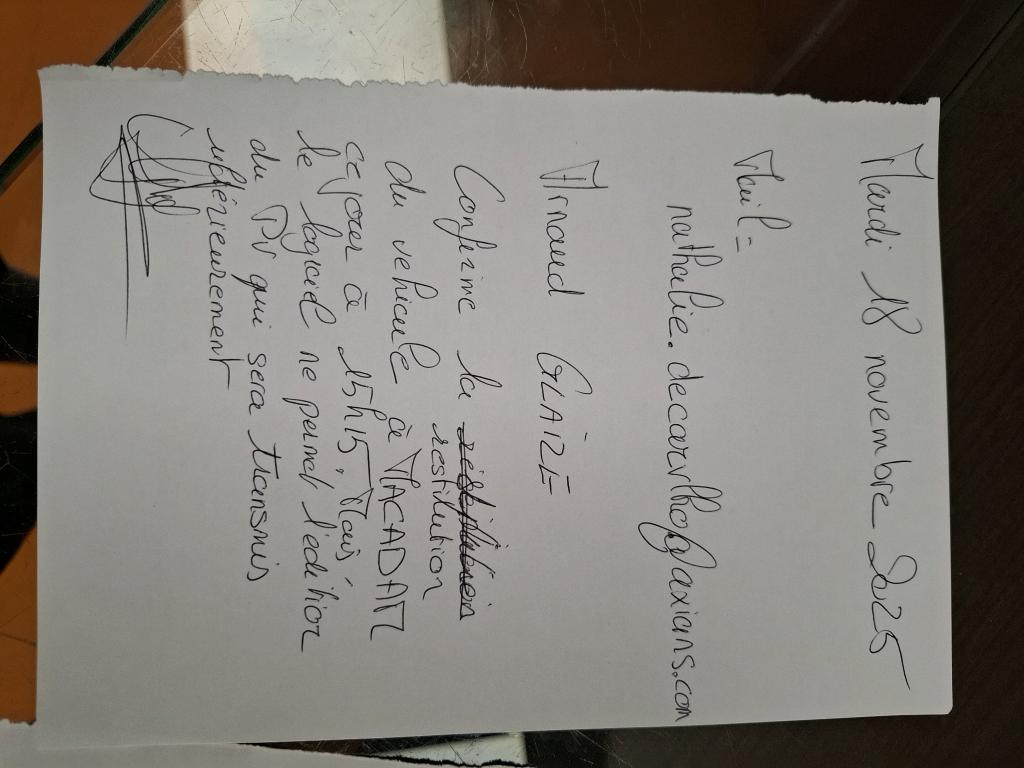 Mardi 18 novembre 2025
Mail =
nathalie.decarvlho@axians.com
Arnaud GLAIZE
Confirme la
restitution
du vehicule à MACADAM
ce jour à 15h15, Mais
le logiciel ne permet l'edition
du PV qui sera transmis
ultérieurement